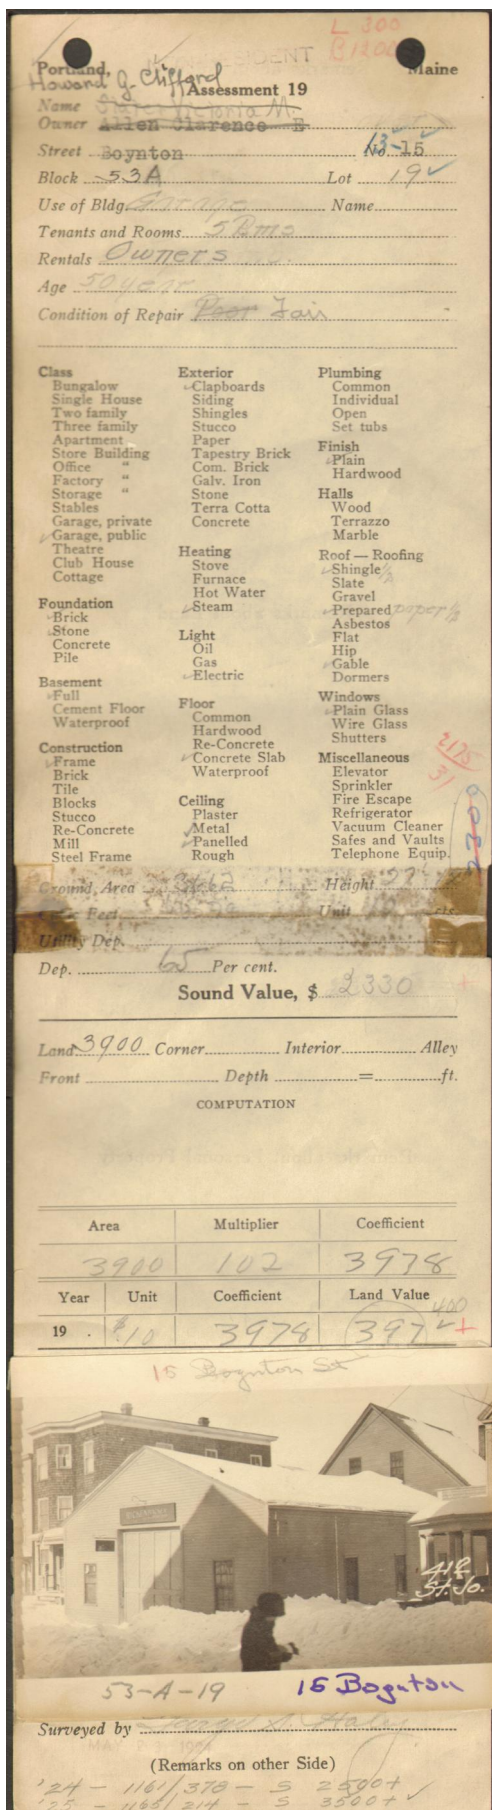 L 300
B 1200
NON-RESIDENT
Portland, Maine
Howard G. Clifford
Assessment 19
Name Victoria M.
Owner Allen Clarence E
Street Boynton No 13-15
Block 53A Lot 19
Use of Bldg. Garage Name
Tenants and Rooms 5 Rms
Rentals Owners
Age 50 year
Condition of Repair Poor Fair
Class
Bungalow
Single House
Two family
Three family
Apartment
Store Building
Office "
Factory "
Storage "
Stables
Garage, private
Garage, public
Theatre
Club House
Cottage
Foundation
Brick
Stone
Concrete
Pile
Basement
Full
Cement Floor
Waterproof
Construction
Frame
Brick
Tile
Blocks
Stucco
Re-Concrete
Mill
Steel Frame
Exterior
Clapboards
Siding
Shingles
Stucco
Paper
Tapestry Brick
Com. Brick
Galv. Iron
Stone
Terra Cotta
Concrete
Heating
Stove
Furnace
Hot Water
Steam
Light
Oil
Gas
Electric
Floor
Common
Hardwood
Re-Concrete
Concrete Slab
Waterproof
Ceiling
Plaster
Metal
Panelled
Rough
Plumbing
Common
Individual
Open
Set tubs
Finish
Plain
Hardwood
Halls
Wood
Terrazzo
Marble
Roof — Roofing
Shingle 1/2
Slate
Gravel
Prepared paper 1/2
Asbestos
Flat
Hip
Gable
Dormers
Windows
Plain Glass
Wire Glass
Shutters
Miscellaneous
Elevator
Sprinkler
Fire Escape
Refrigerator
Vacuum Cleaner
Safes and Vaults
Telephone Equip.
2175
31
2300
Ground Area Height
Feet Unit cts.
Utility Dep.
Dep. 65 Per cent.
Sound Value, $ 2330
Land 3900 Corner Interior Alley
Front Depth = ft.
COMPUTATION
Area Multiplier Coefficient
3900 102 3978
Year Unit Coefficient Land Value
400
19 $.10 3978 397
15 Boynton St
412
St. Jo.
53-A-19 15 Boynton
Surveyed by
(Remarks on other Side)
'24 - 1161/378 - S 2500+
'25 - 1165/214 - S 3500+